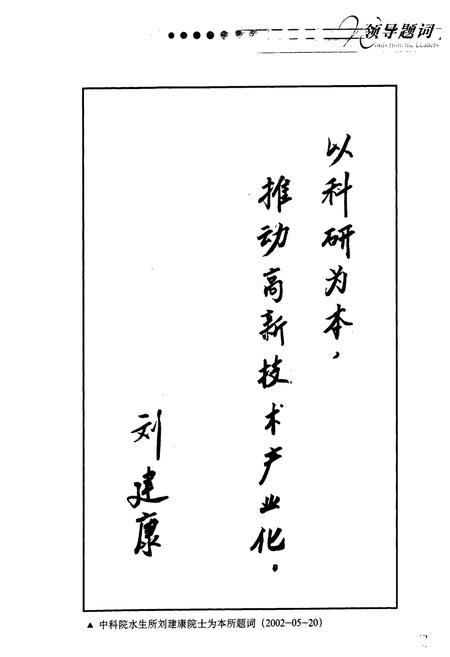 领导题词
Words from the Leaders
以科研为本，
推动高新技术产业化。
刘建康
▲ 中科院水生所刘建康院士为本所题词（2002-05-20）